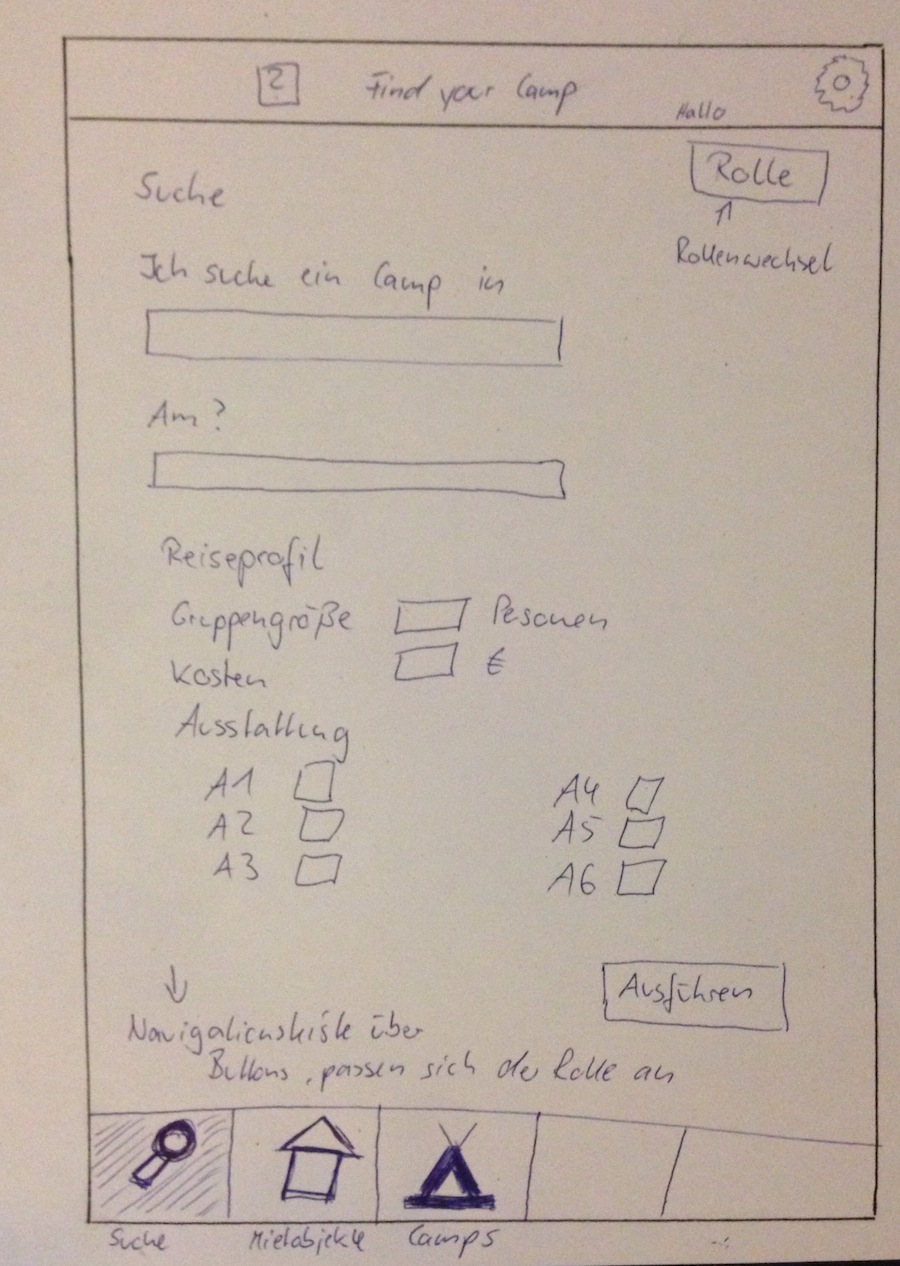 ? Find your Camp
Hallo
Rolle
Suche
Rollenwechsel
Ich suche ein Camp in
Am?
Reiseprofil
Gruppengröße Pesonen
Kosten €
Ausstattung
A1 A4
A2 A5
A3 A6
Ausführen
Navigationskiste über
Buttons, passen sich der Rolle an
Suche Mietobjekte Camps ...